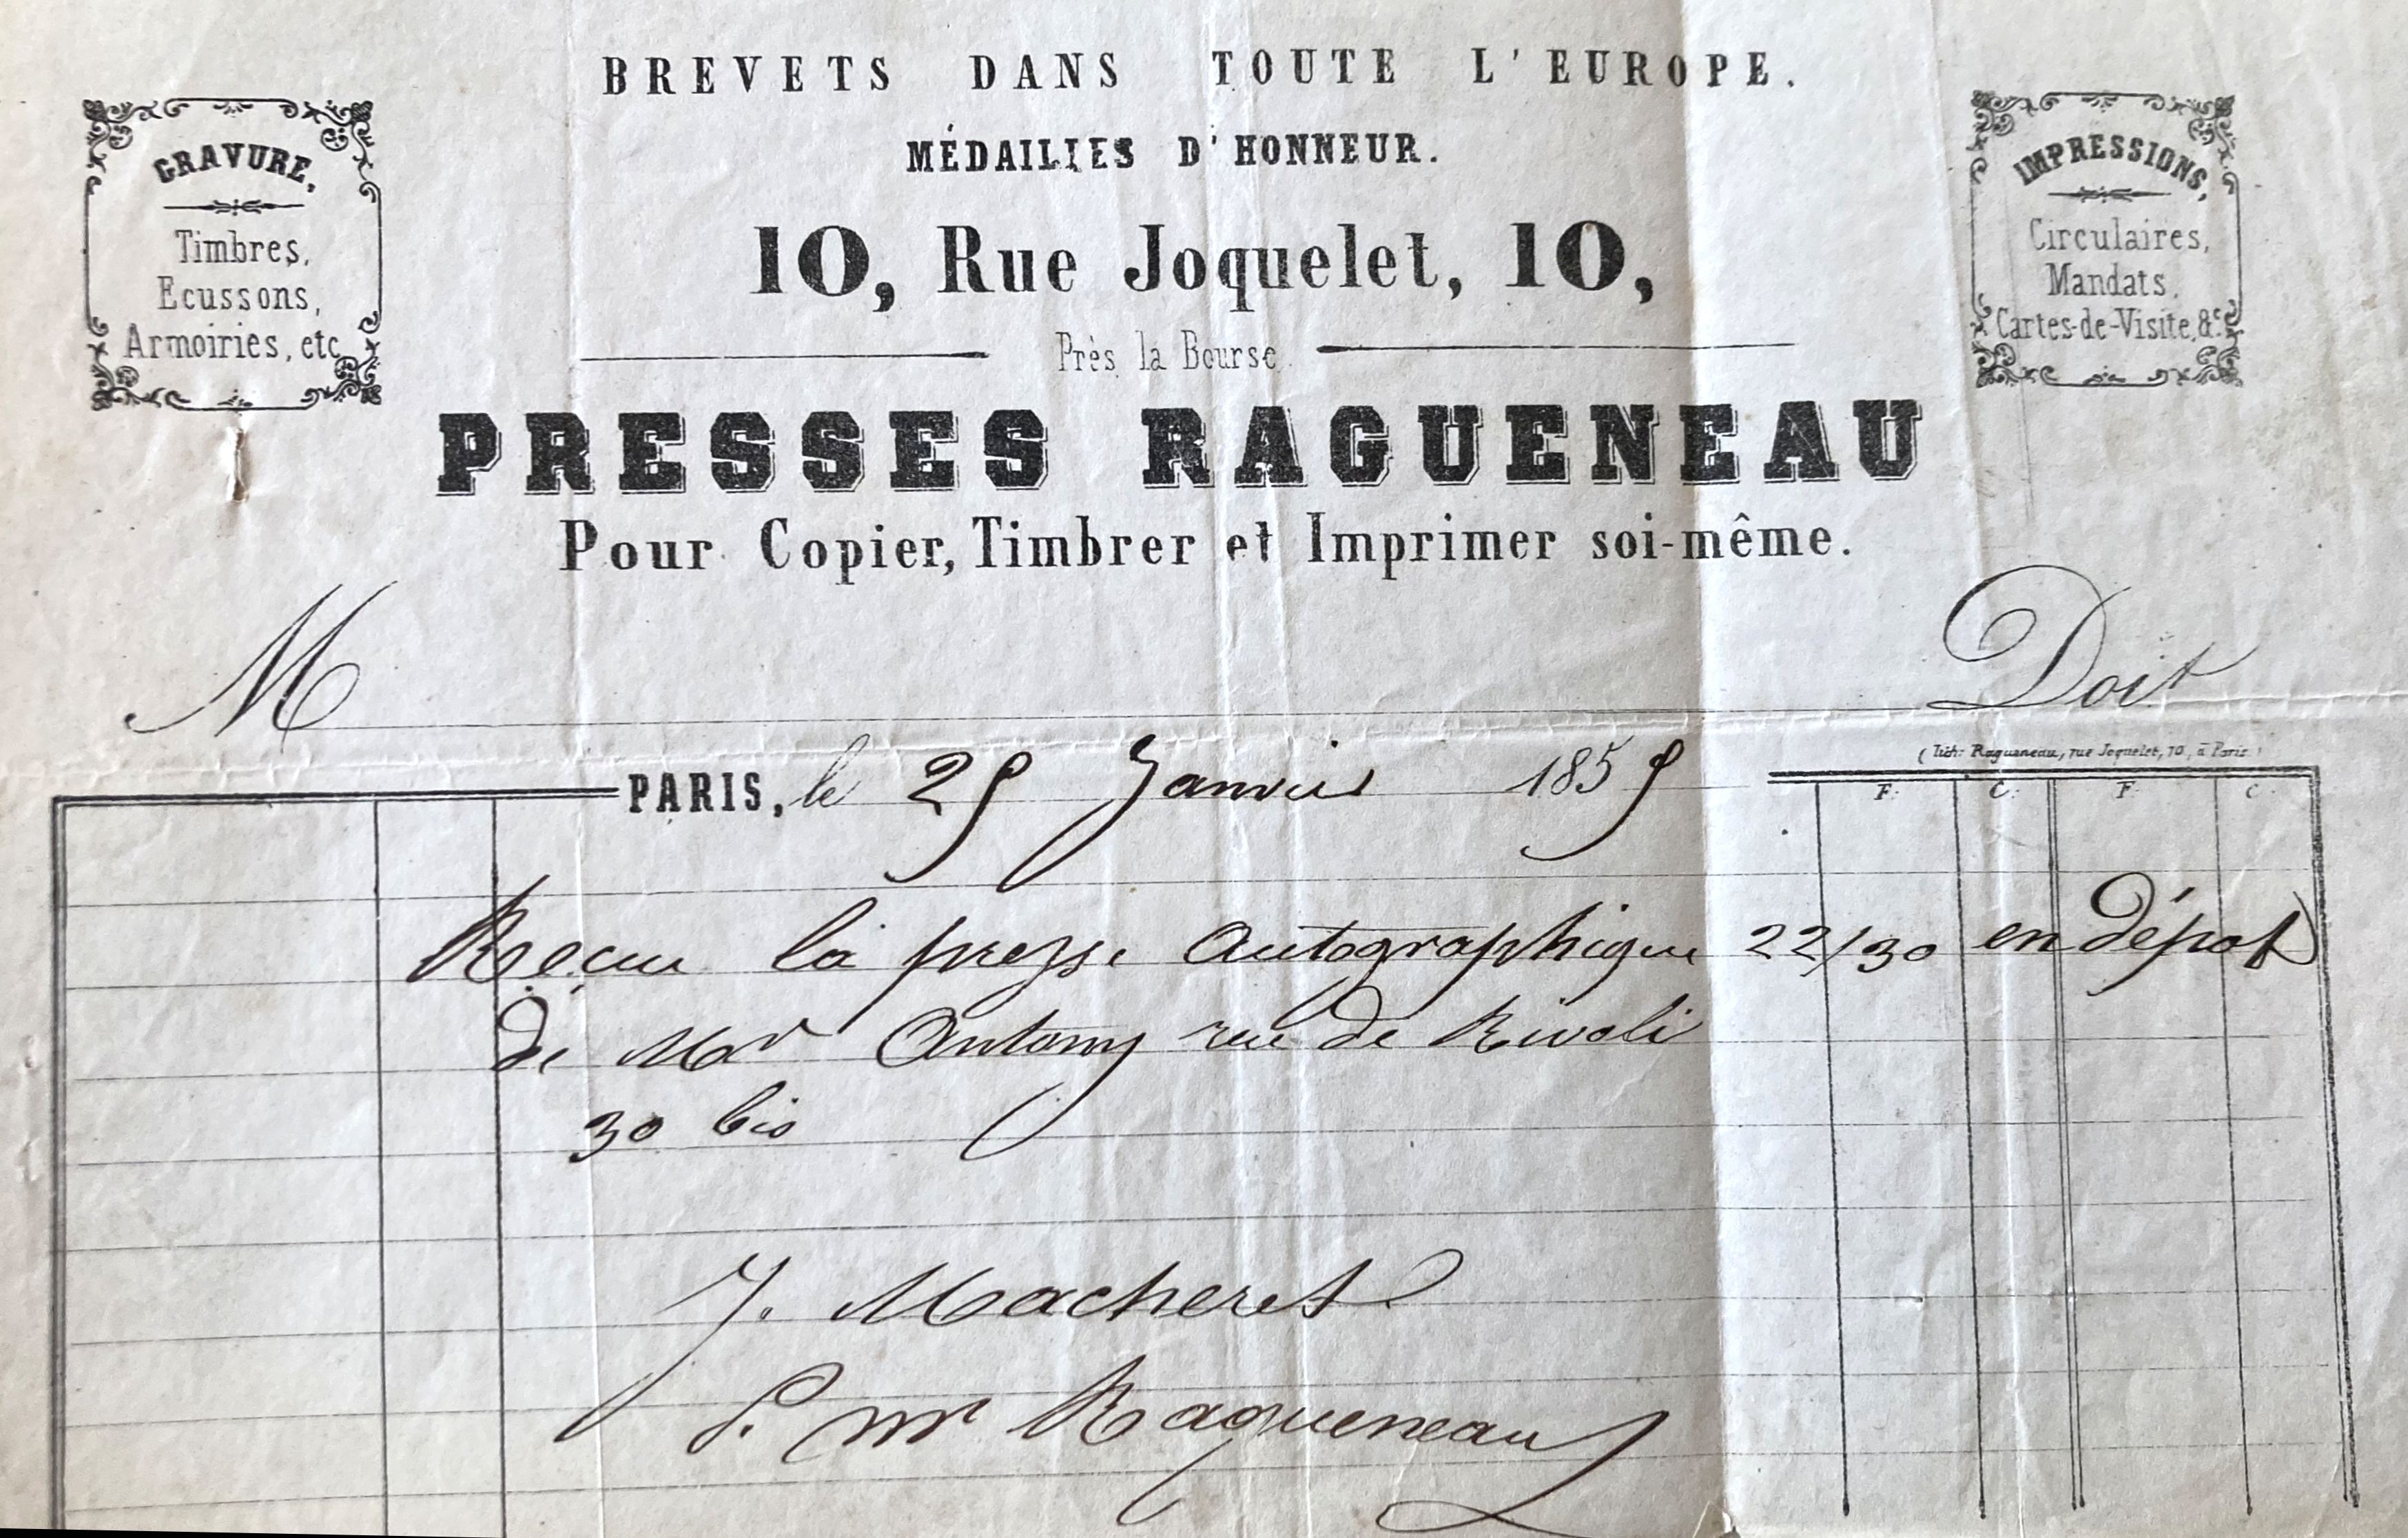 BREVETS DANS TOUTE L'EUROPE.
MÉDAILLES D'HONNEUR.
GRAVURE,
Timbres,
Ecussons,
Armoiries, etc
IMPRESSIONS,
Circulaires,
Mandats,
Cartes-de-Visite, &c
10, Rue Joquelet, 10,
Près la Bourse.
PRESSES RAGUENEAU
Pour Copier, Timbrer et Imprimer soi-même.
M Doit
(lith: Ragueneau, rue Joquelet, 10, à Paris.)
PARIS, le 25 Janvier 1855
F. C. F. C.
Reçu la presse autographique 22/30 en dépot
de Mr Antony rue de Rivoli
30 bis
J. Macheret
P. mr Ragueneau